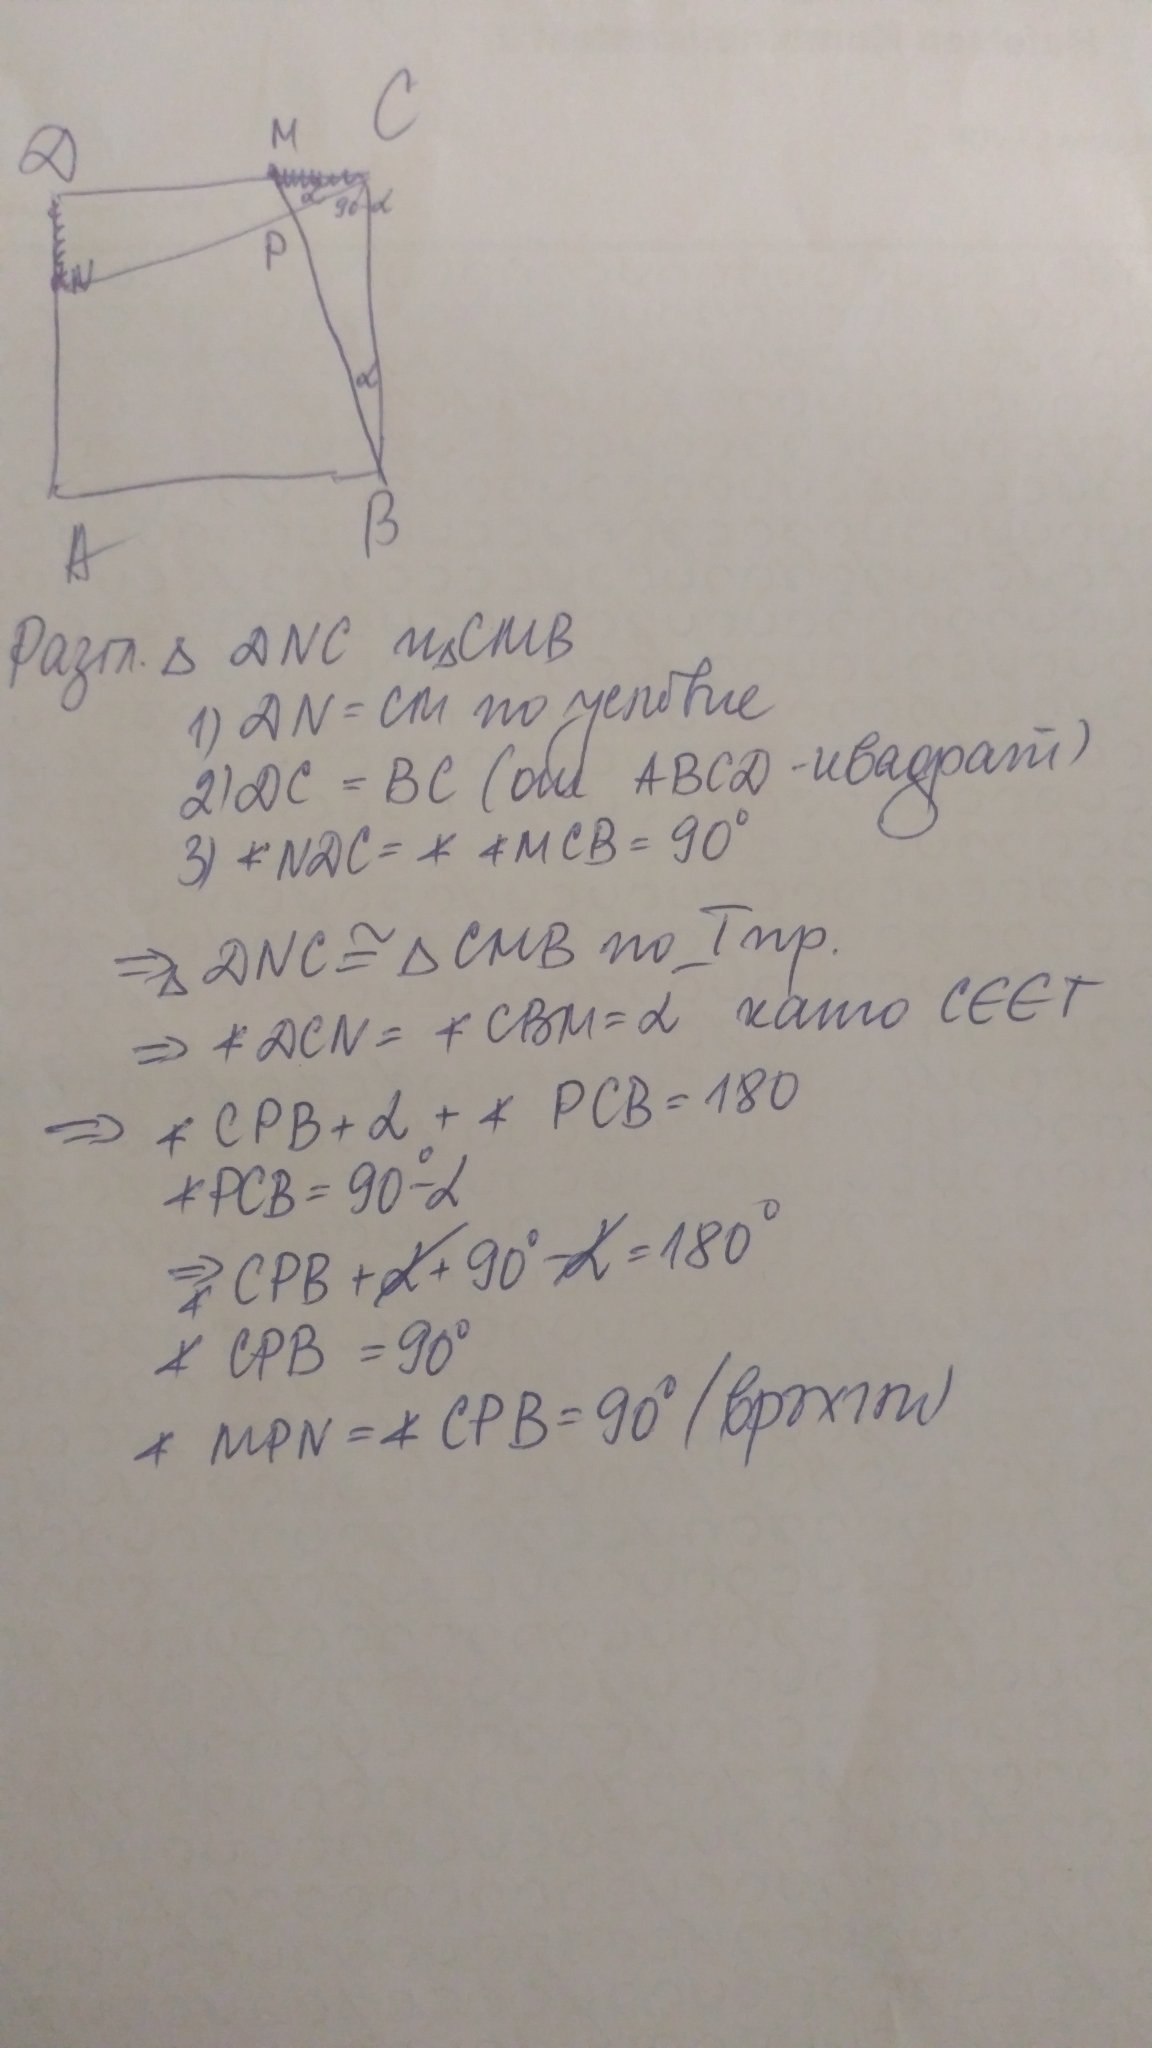 M
C
D
α
90-α
P
N
α
B
A
Разгл. Δ DNC и Δ CMB
1) DN = CM по условие
2) DC = BC (от ABCD - квадрат)
3) ∢ NDC = ∢ ∢ MCB = 90°
⇒ Δ DNC ≅ Δ CMB по I пр.
⇒ ∢ DCN = ∢ CBM = α като СЕЕТ
⇒ ∢ CPB + α + ∢ PCB = 180
∢ PCB = 90° - α
⇒ ∢ CPB + α + 90° - α = 180°
∢ CPB = 90°
∢ MPN = ∢ CPB = 90° (връхни)